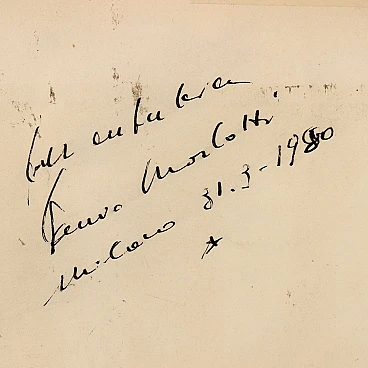 autentica
Ennio Morlotti
Milano 31.3-1980